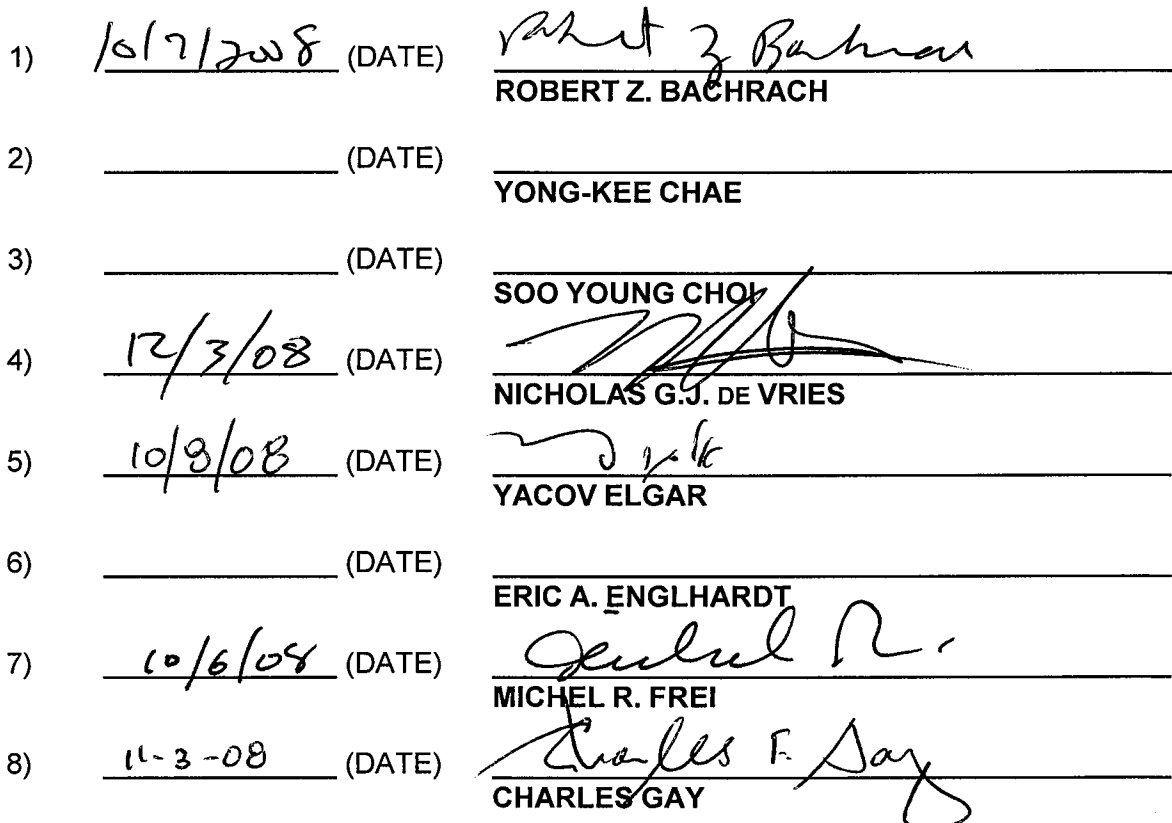 1) 10/7/2008 (DATE) Robert Z Bachrach
ROBERT Z. BACHRACH
2) (DATE)
YONG-KEE CHAE
3) (DATE)
SOO YOUNG CHOI
4) 12/3/08 (DATE)
NICHOLAS G.J. DE VRIES
5) 10/8/08 (DATE)
YACOV ELGAR
6) (DATE)
ERIC A. ENGLHARDT
7) 10/6/08 (DATE)
MICHEL R. FREI
8) 11-3-08 (DATE) Charles F. Gay
CHARLES GAY